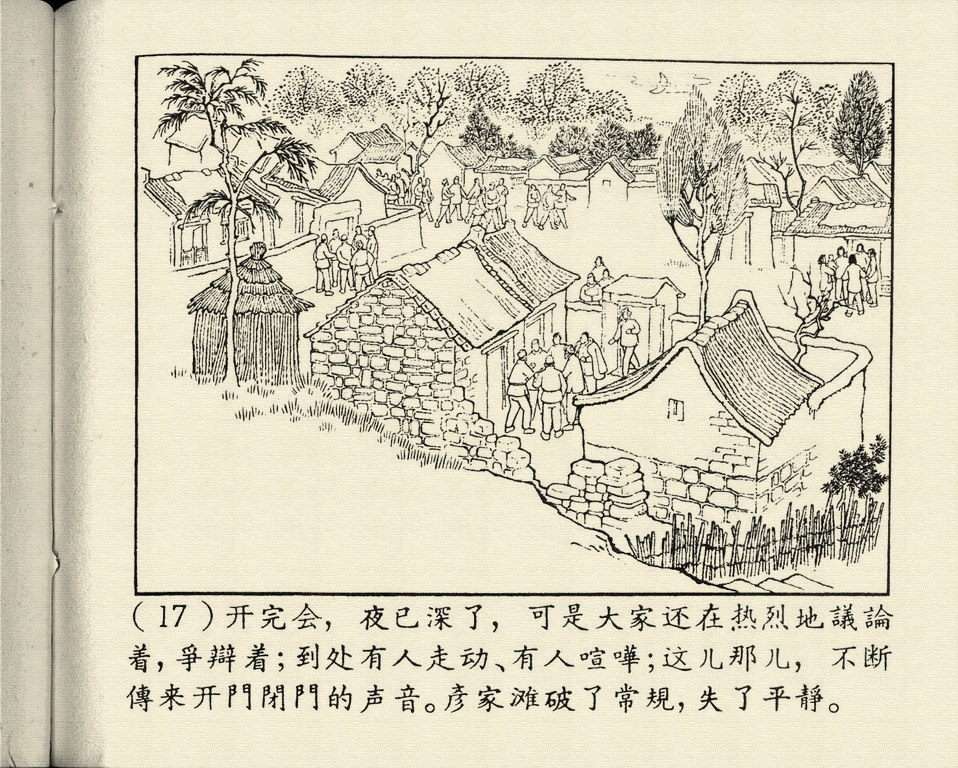 （17）开完会，夜已深了，可是大家还在热烈地議論
着，爭辯着；到处有人走动、有人喧嘩；这儿那儿，不断
傳来开門閉門的声音。彦家滩破了常規，失了平靜。